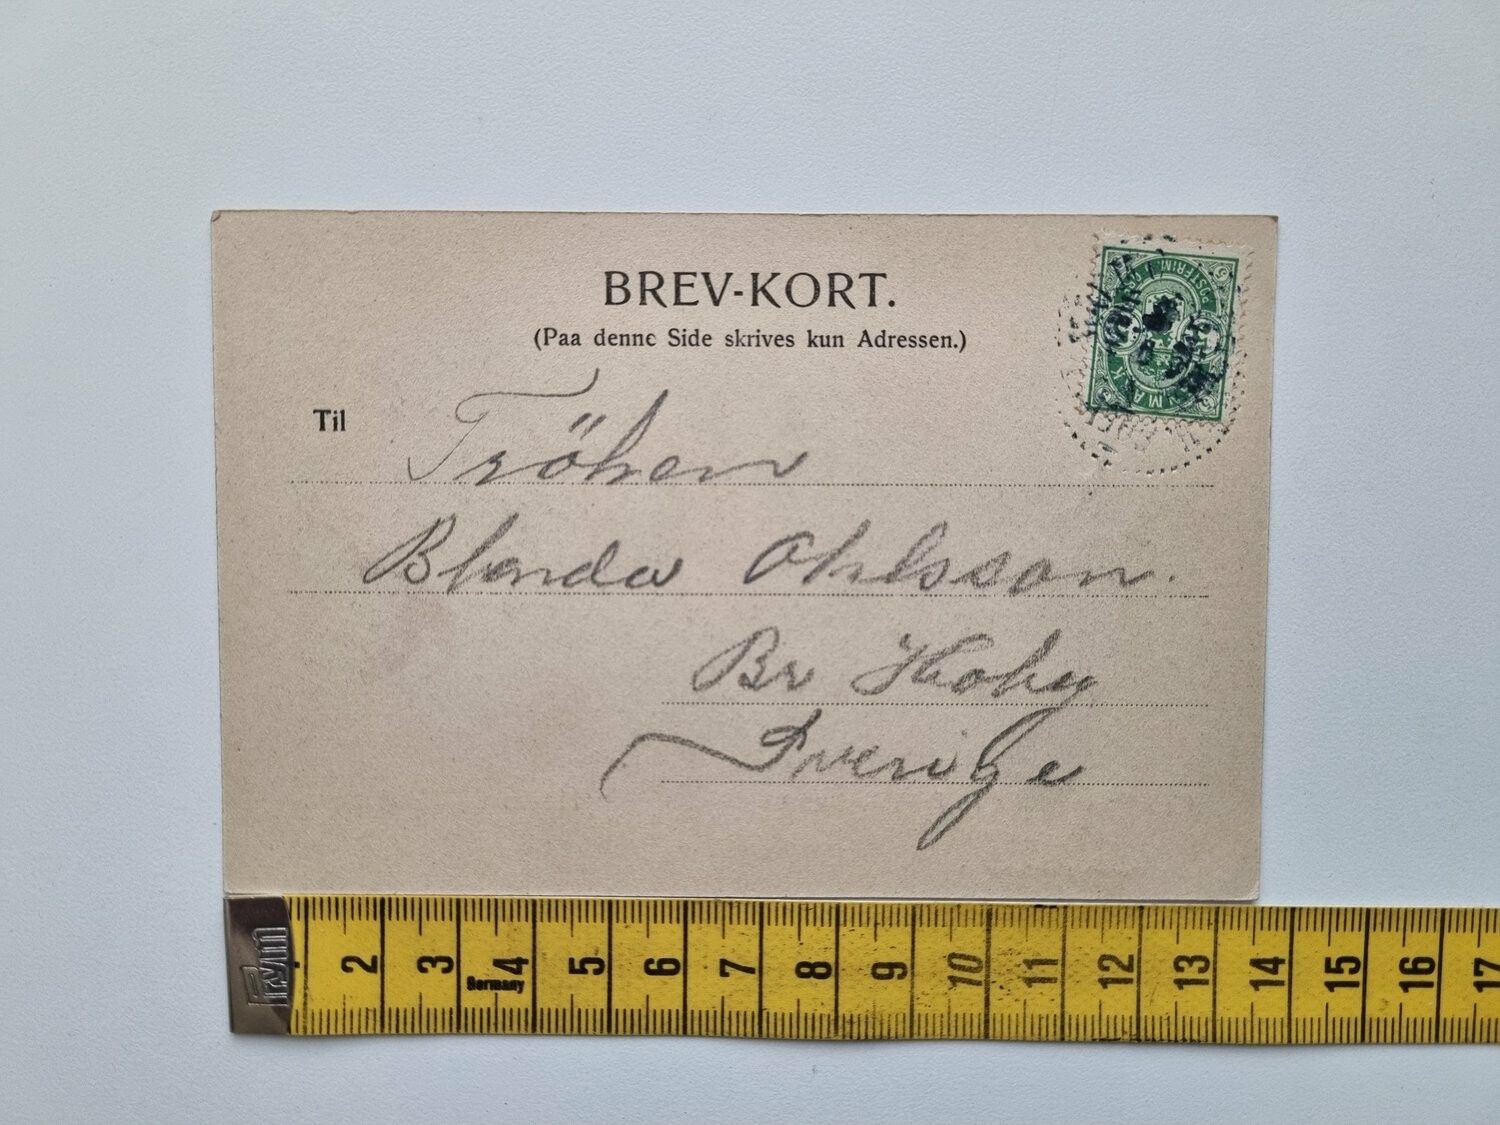 BREV-KORT.
(Paa denne Side skrives kun Adressen.)
Til
Fröken
Blenda Ohlsson.
Br Hoby
Sverige
POSTFRIM.
5 5
Prym
2 3 4 5 6 7 8 9 10 11 12 13 14 15 16 17
Germany